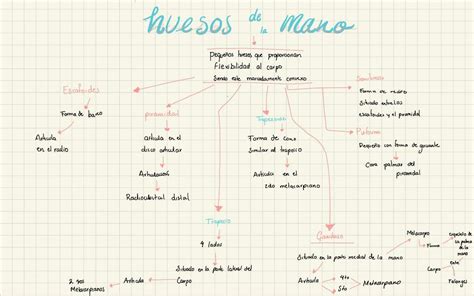 huesos de la mano
Pequeños huesos que proporcionan
Flexibilidad al carpo
Siendo este marcadamente convexo
Escafoides
Forma de barco
Articula
en el radio
piramidal
articula en el
disco articular
Articulación
Radiocubital distal
Trapezoide
Forma de cono
Similar al trapecio
Articula
en el
2do metacarpiano
Semilunar
Forma de
Situado entre los
escafoides y el piramidal
Pisiforme
Pequeño con forma de guisante
Cara palmar del
piramidal
Trapecio
4 lados
Situado en la parte lateral del
Carpo
Articula
2
Metacarpianos
Ganchoso
Situado en la parte medial de la mano
Articula
4to
5to
Metacarpiano
Metacarpo
Forma
esqueleto de
la palma
de la
mano
Entre
Carpo
Falanges